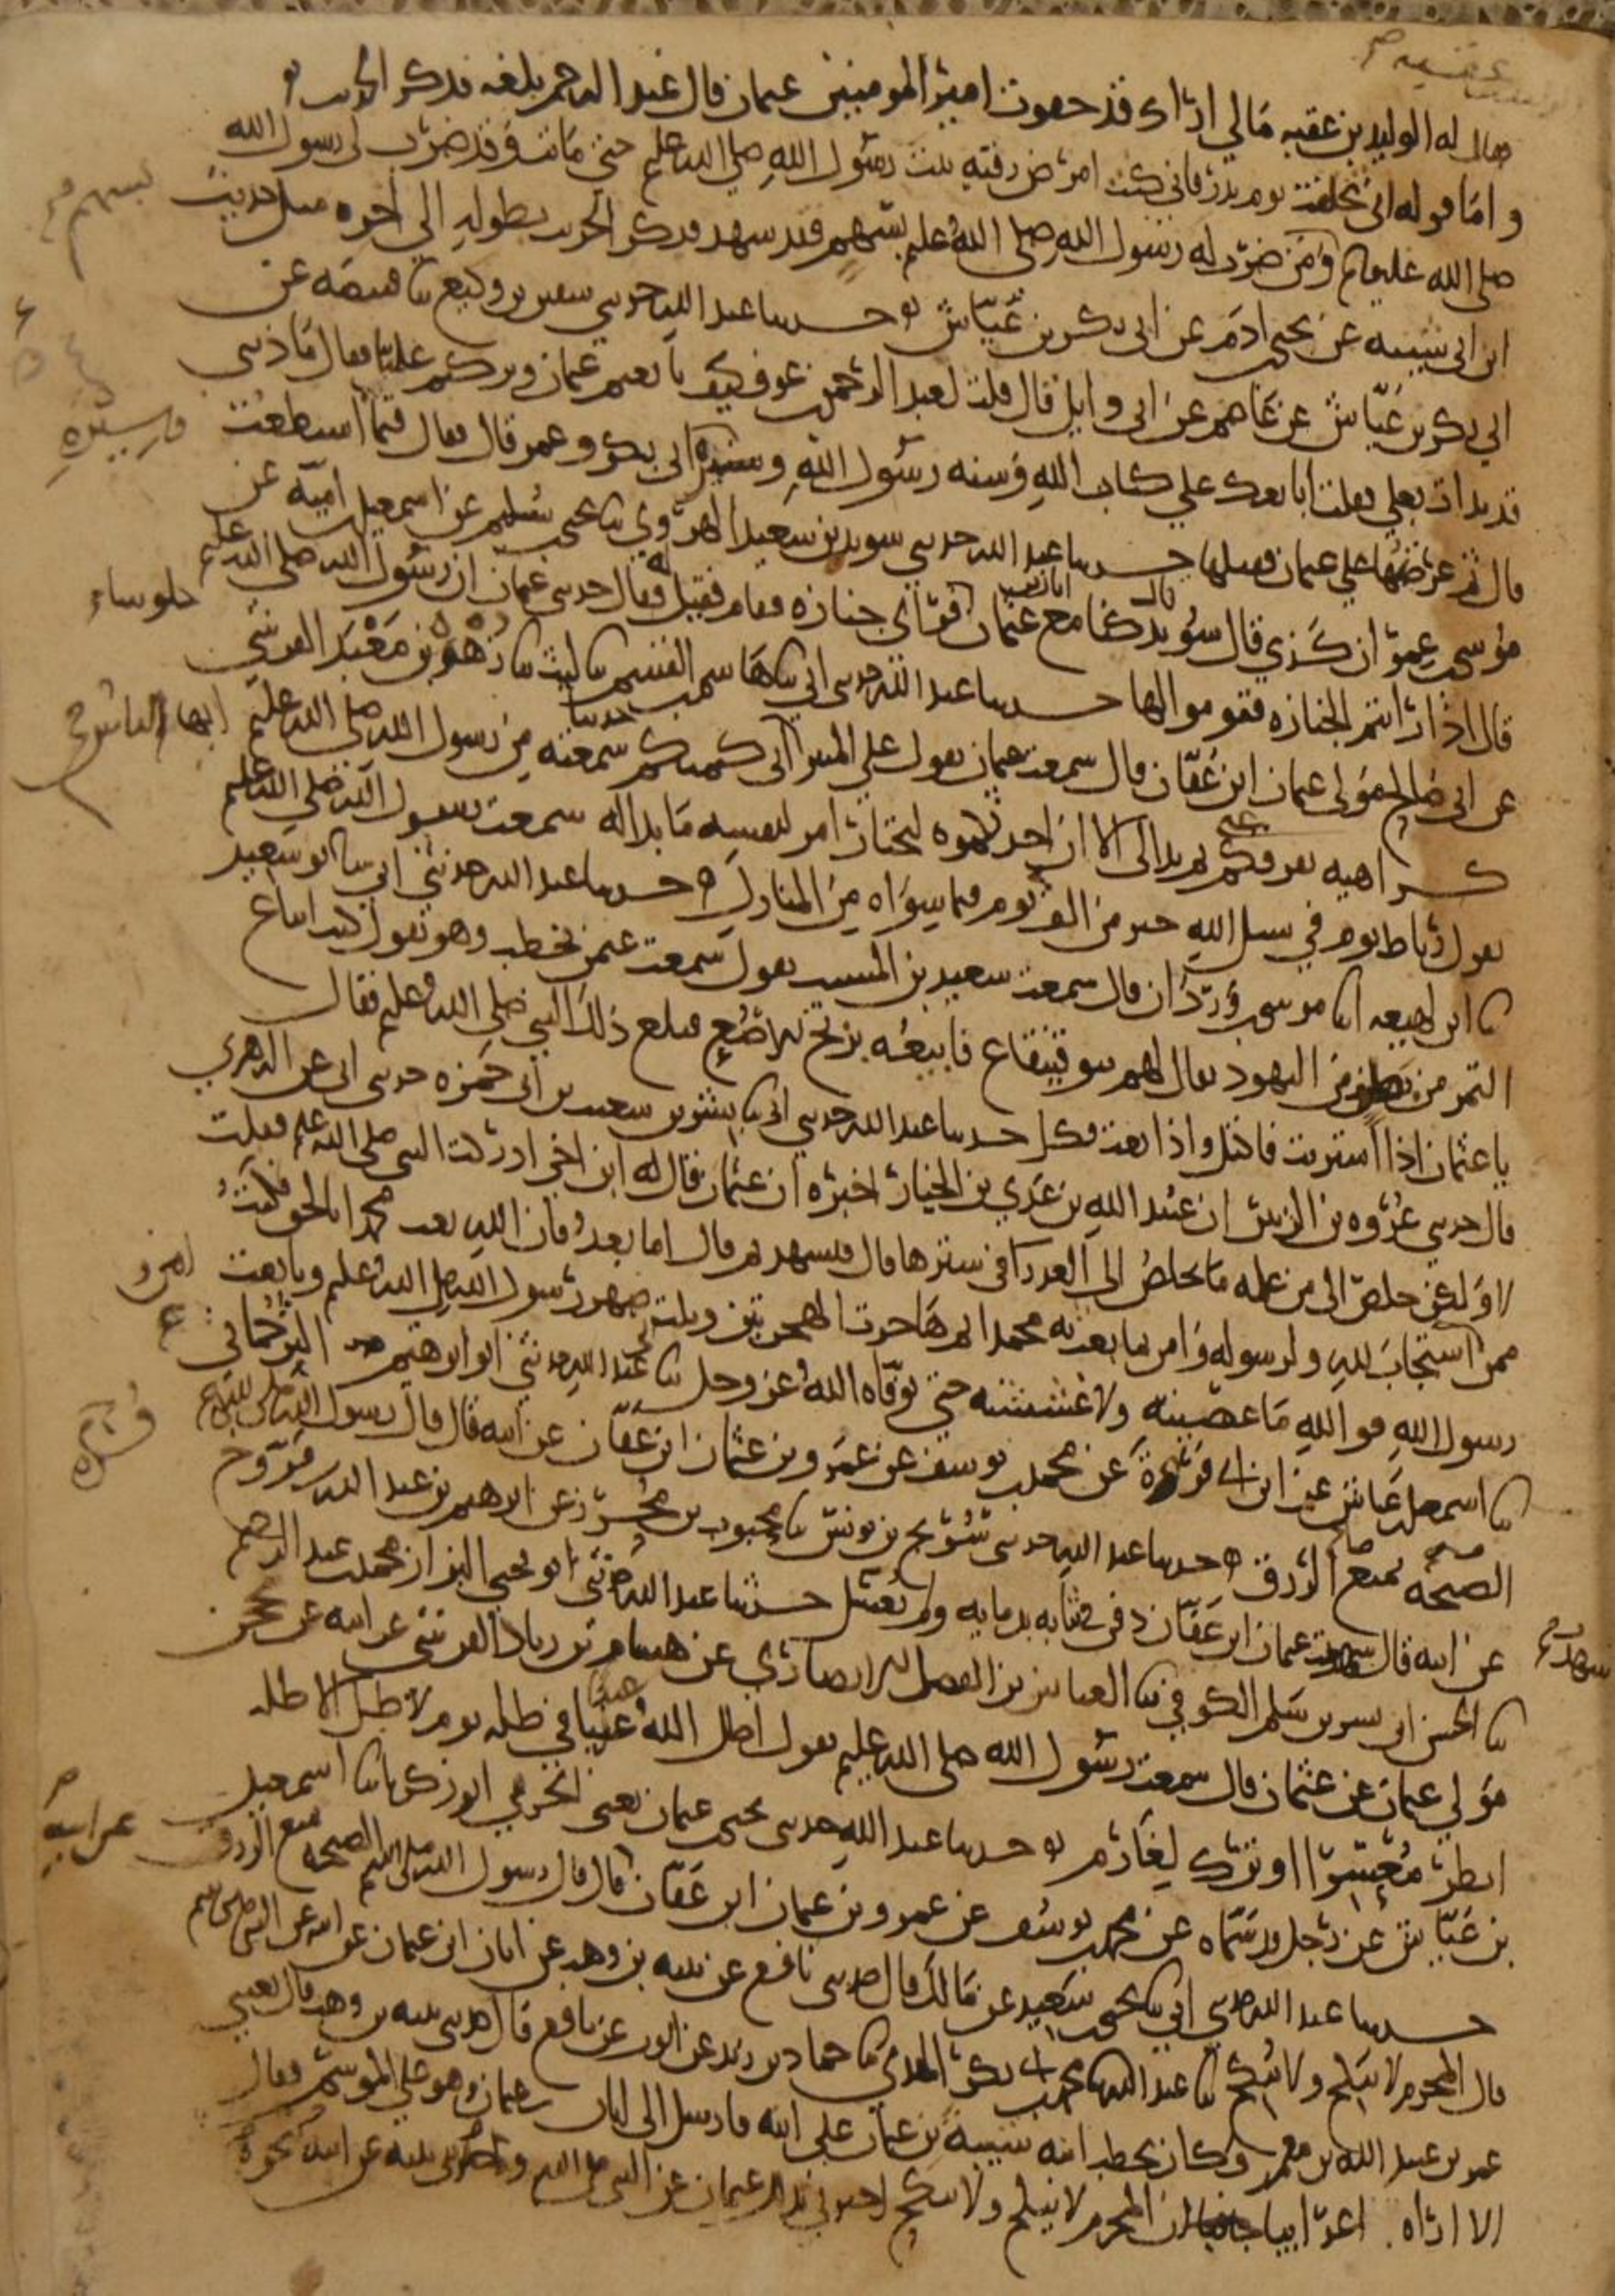 فقال له الوليد بن عقبه مالي اراك قد جفوت امير المومنين عثمان قال عبد الرحمن بلغه فذكر الحديث
واما قوله اني تخلفت يوم بدر فاني كنت امرض رقيه بنت رسول الله صلى الله عليه حتى ماتت وقد ضرب لي رسول الله
صلى الله عليه ومن ضرب له رسول الله صلى الله عليه بسهم فقد شهد فذكر الحديث بطوله الى اخره مثل حديث
ابن ابي شيبه عن يحيى ادم عن ابي بكر بن عياش حدثنا عبد الله حدثني سفين بن وكيع ثنا قبيصه عن
ابي بكر بن عياش عن عاصم عن ابي وايل قال قلت لعبد الرحمن عوف كيف بايعتم عثمان وتركتم عليا فقال ما ذنبي
قد بدات بعلي فقلت ابايعك على كتاب الله وسنه رسول الله وسيره ابي بكر وعمر قال فقال فيما استطعت
قال ثم عرضتها على عثمان فقبلها حدثنا عبد الله حدثني سويد بن سعيد الهروي ثنا يحيى سليم عن اسمعيل اميه عن
موسى عمران قال سويد كنا مع عثمان فراى جنازه فقام فقيل له فقال حدثني عثمان ان رسول الله صلى الله عليه
قال اذا رايتم الجنازه فقوموا لها حدثنا عبد الله حدثني ابي ثنا هاشم القسم ثنا ليث ثنا زهره بن معبد القرشي
عن ابي صالح مولى عثمان ابن عفان قال سمعت عثمان يقول على المنبر اني كتمتكم حديثا سمعته من رسول الله صلى الله عليه
كراهيه تفرقكم عني ثم بدا لي الا ان احدثكموه ليختار امر لنفسه ما بدا له سمعت رسول الله صلى الله عليه
يقول رباط يوم في سبيل الله خير من الف يوم فيما سواه من المنازل حدثنا عبد الله حدثني ابي ثنا ابو سعيد
ثنا ابن لهيعه انا موسى وردان قال سمعت سعيد بن المسيب يقول سمعت عثمن يخطب وهو يقول كنت ابتاع
التمر من بطن من اليهود يقال لهم بنو قينقاع فابيعه بربح فبلغ ذلك النبي صلى الله عليه فقال
يا عثمان اذا اشتريت فاكتل واذا بعت فكل حدثنا عبد الله حدثني ابي ثنا بشر بن سعيد بن ابي حمزه حدثني ابي عن الزهري
قال حدثني عروه بن الزبير ان عبيد الله بن عدي بن الخيار اخبره ان عثمان قال له ابن اخي ادركت النبي صلى الله عليه فقلت
لا ولكن خلص الي من علمه ما يخلص الى العذرا في سترها قال فتشهد ثم قال اما بعد فان الله بعث محمدا بالحق فكنت
ممن استجاب لله ولرسوله وامن بما بعث به محمد ثم هاجرت الهجرتين ونلت صهر رسول الله صلى الله عليه وبايعت
رسول الله فوالله ما عصيته ولا غششته حتى توفاه الله عز وجل ثنا عبد الله حدثني ابو ابرهيم الترجماني
ثنا اسمعيل عياش عن ابن ابي فروة عن محمد يوسف عن عمرو بن عثمان ابن عفان عن ابيه قال قال رسول الله صلى الله عليه
الصبحه تمنع الرزق حدثنا عبد الله حدثني سريج بن يونس ثنا محبوب بن محرز عن ابرهيم بن عبد الله فروخ
عن ابيه قال شهدت عثمان ابن عفان دفن في ثيابه بدمايه ولم يغسل حدثنا عبد الله حدثني ابو يحيى البزاز محمد عبد الرحيم
ثنا الحسن ابن بشر بن سلم الكوفي ثنا العباس بن الفضل الانصاري عن هشام بن زياد القرشي عن ابيه عن محجن
مولى عثمان عن عثمان قال سمعت رسول الله صلى الله عليه يقول اظل الله عبدا في ظله يوم لا ظل الا ظله
انظر معسرا او ترك لغارم حدثنا عبد الله حدثني يحيى عثمان يعني الحربي ابو زكريا ثنا اسمعيل
بن عياش عن رجل قد سماه عن محمد يوسف عن عمرو بن عثمان ابن عفان قال قال رسول الله صلى الله الصبحه تمنع الرزق
عن ابيه
حدثنا عبد الله حدثني ابي ثنا يحيى سعيد عن مالك قال حدثني نافع عن نبيه بن وهب عن ابان ابن عثمان عن ابيه عن النبي صلى الله
قال المحرم لا ينكح ولا ينكح ثنا عبد الله ثنا محمد ابي بكر المقدمي ثنا حماد بن زيد عن ايوب عن نافع قال حدثني نبيه بن وهب قال بعثني
عمر بن عبيد الله بن معمر وكان يخطب ابنه شيبة بن عثمان على ابنه فارسل الى ابان بن عثمان وهو على الموسم فقال
الا اراه اعرابيا ان المحرم لا ينكح ولا ينكح اخبرني بذلك عثمان عن النبي صلى الله وحدثني نبيه عن ابيه نحوه